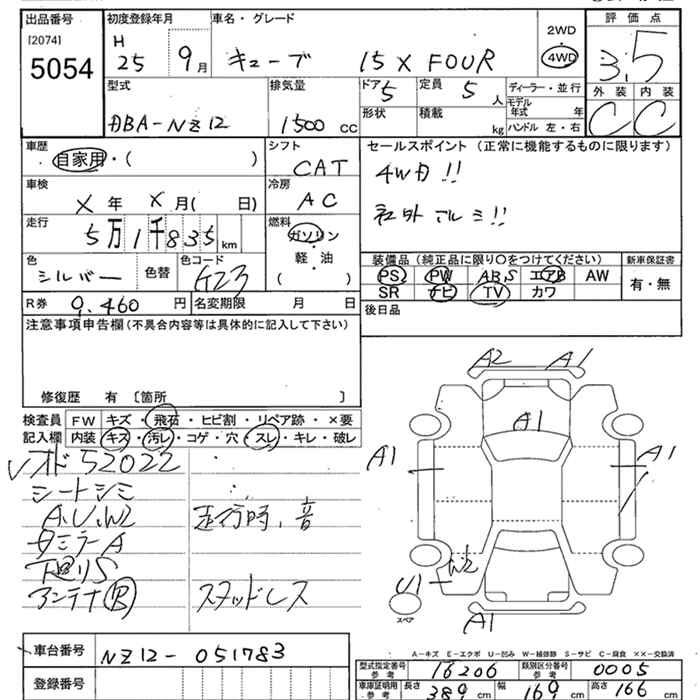 出品番号 初度登録年月 車名・グレード 評価点
[2074] H 2WD
5054 25 9月 キューブ 15X FOUR 4WD 3.5
型式 排気量 ドア 5 定員 5人 ディーラー・並行 外装 内装
DBA-NZ12 1500cc 形状 積載 kg モデル年式 年 ハンドル 左・右 C C
車歴 自家用・( ) シフト CAT セールスポイント (正常に機能するものに限ります)
車検 X年 X月( 日) 冷房 AC 4WD!!
走行 5万1千835km 燃料 ガソリン・軽・油( ) 社外アルミ!!
色 シルバー 色替 色コード 装備品 (純正品に限り○をつけてください) 新車保証書
PS PW ABS エアB AW 有・無
SR ナビ TV カワ
R券 9,460円 名変期限 月 日 後日品
注意事項申告欄(不具合内容等は具体的に記入して下さい)
修復歴 有 〔箇所 〕
検査員記入欄 FW キズ・飛石・ヒビ割・リペア跡・×要
内装 キズ・汚レ・コゲ・穴・スレ・キレ・破レ
オド52022
シートシミ
A.U.W2 走行時、音
ミラーA
アンテナB スタッドレス
A2 A1
A1
A1 A1
W2
U1
スペア
A1
A-キズ E-エクボ U-凹み W-補修跡 S-サビ C-腐食 ××-交換済
車台番号 NZ12-051783
登録番号
型式指定番号 参考 16206 類別区分番号 参考 0005
車庫証明用 参考 長さ 389cm 幅 169cm 高さ 166cm